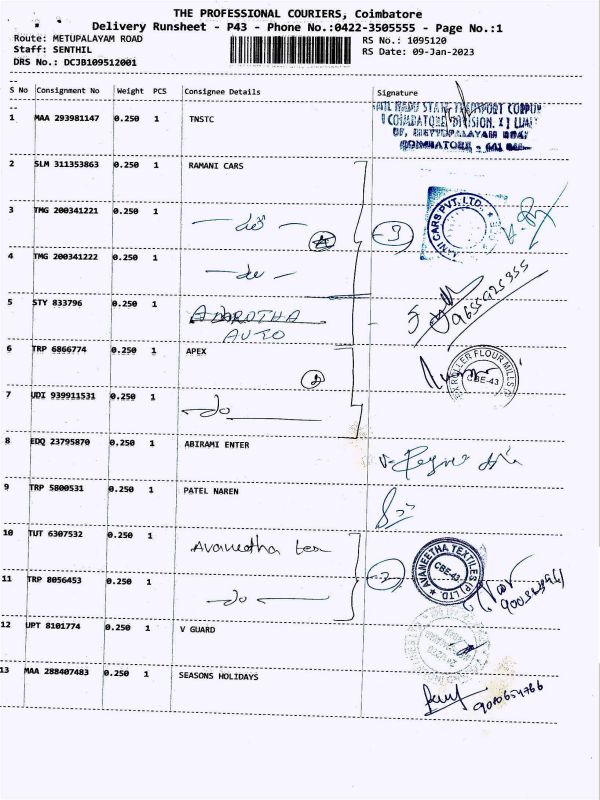 THE PROFESSIONAL COURIERS, Coimbatore
Delivery Runsheet - P43 - Phone No.:0422-3505555 - Page No.:1
Route: METUPALAYAM ROAD
RS No.: 1095120
Staff: SENTHIL
RS Date: 09-Jan-2023
DRS No.: DCJB109512001
S No Consignment No Weight PCS Consignee Details Signature
1 MAA 293981147 0.250 1 TNSTC
TAMIL NADU STATE TRANSPORT
COIMBATORE DIVISION
METTUPALAYAM ROAD
COIMBATORE - 641
2 SLM 311353863 0.250 1 RAMANI CARS
3 TMG 200341221 0.250 1 — do —
3
CARS PVT. LTD.
4 TMG 200341222 0.250 1 — do —
5 STY 833796 0.250 1
AUTO
9655925355
6 TRP 6866774 0.250 1 APEX
2
ROLLER FLOUR MILLS
CBE-43
7 UDI 939911531 0.250 1 — do —
8 EDQ 23795870 0.250 1 ABIRAMI ENTER
9 TRP 5800531 0.250 1 PATEL NAREN
10 TUT 6307532 0.250 1 Avaneetha tex
2
AVANEETHA TEXTILES (P) LTD.
CBE-43
11 TRP 8056453 0.250 1 — do —
12 UPT 8101774 0.250 1 V GUARD
13 MAA 288407483 0.250 1 SEASONS HOLIDAYS